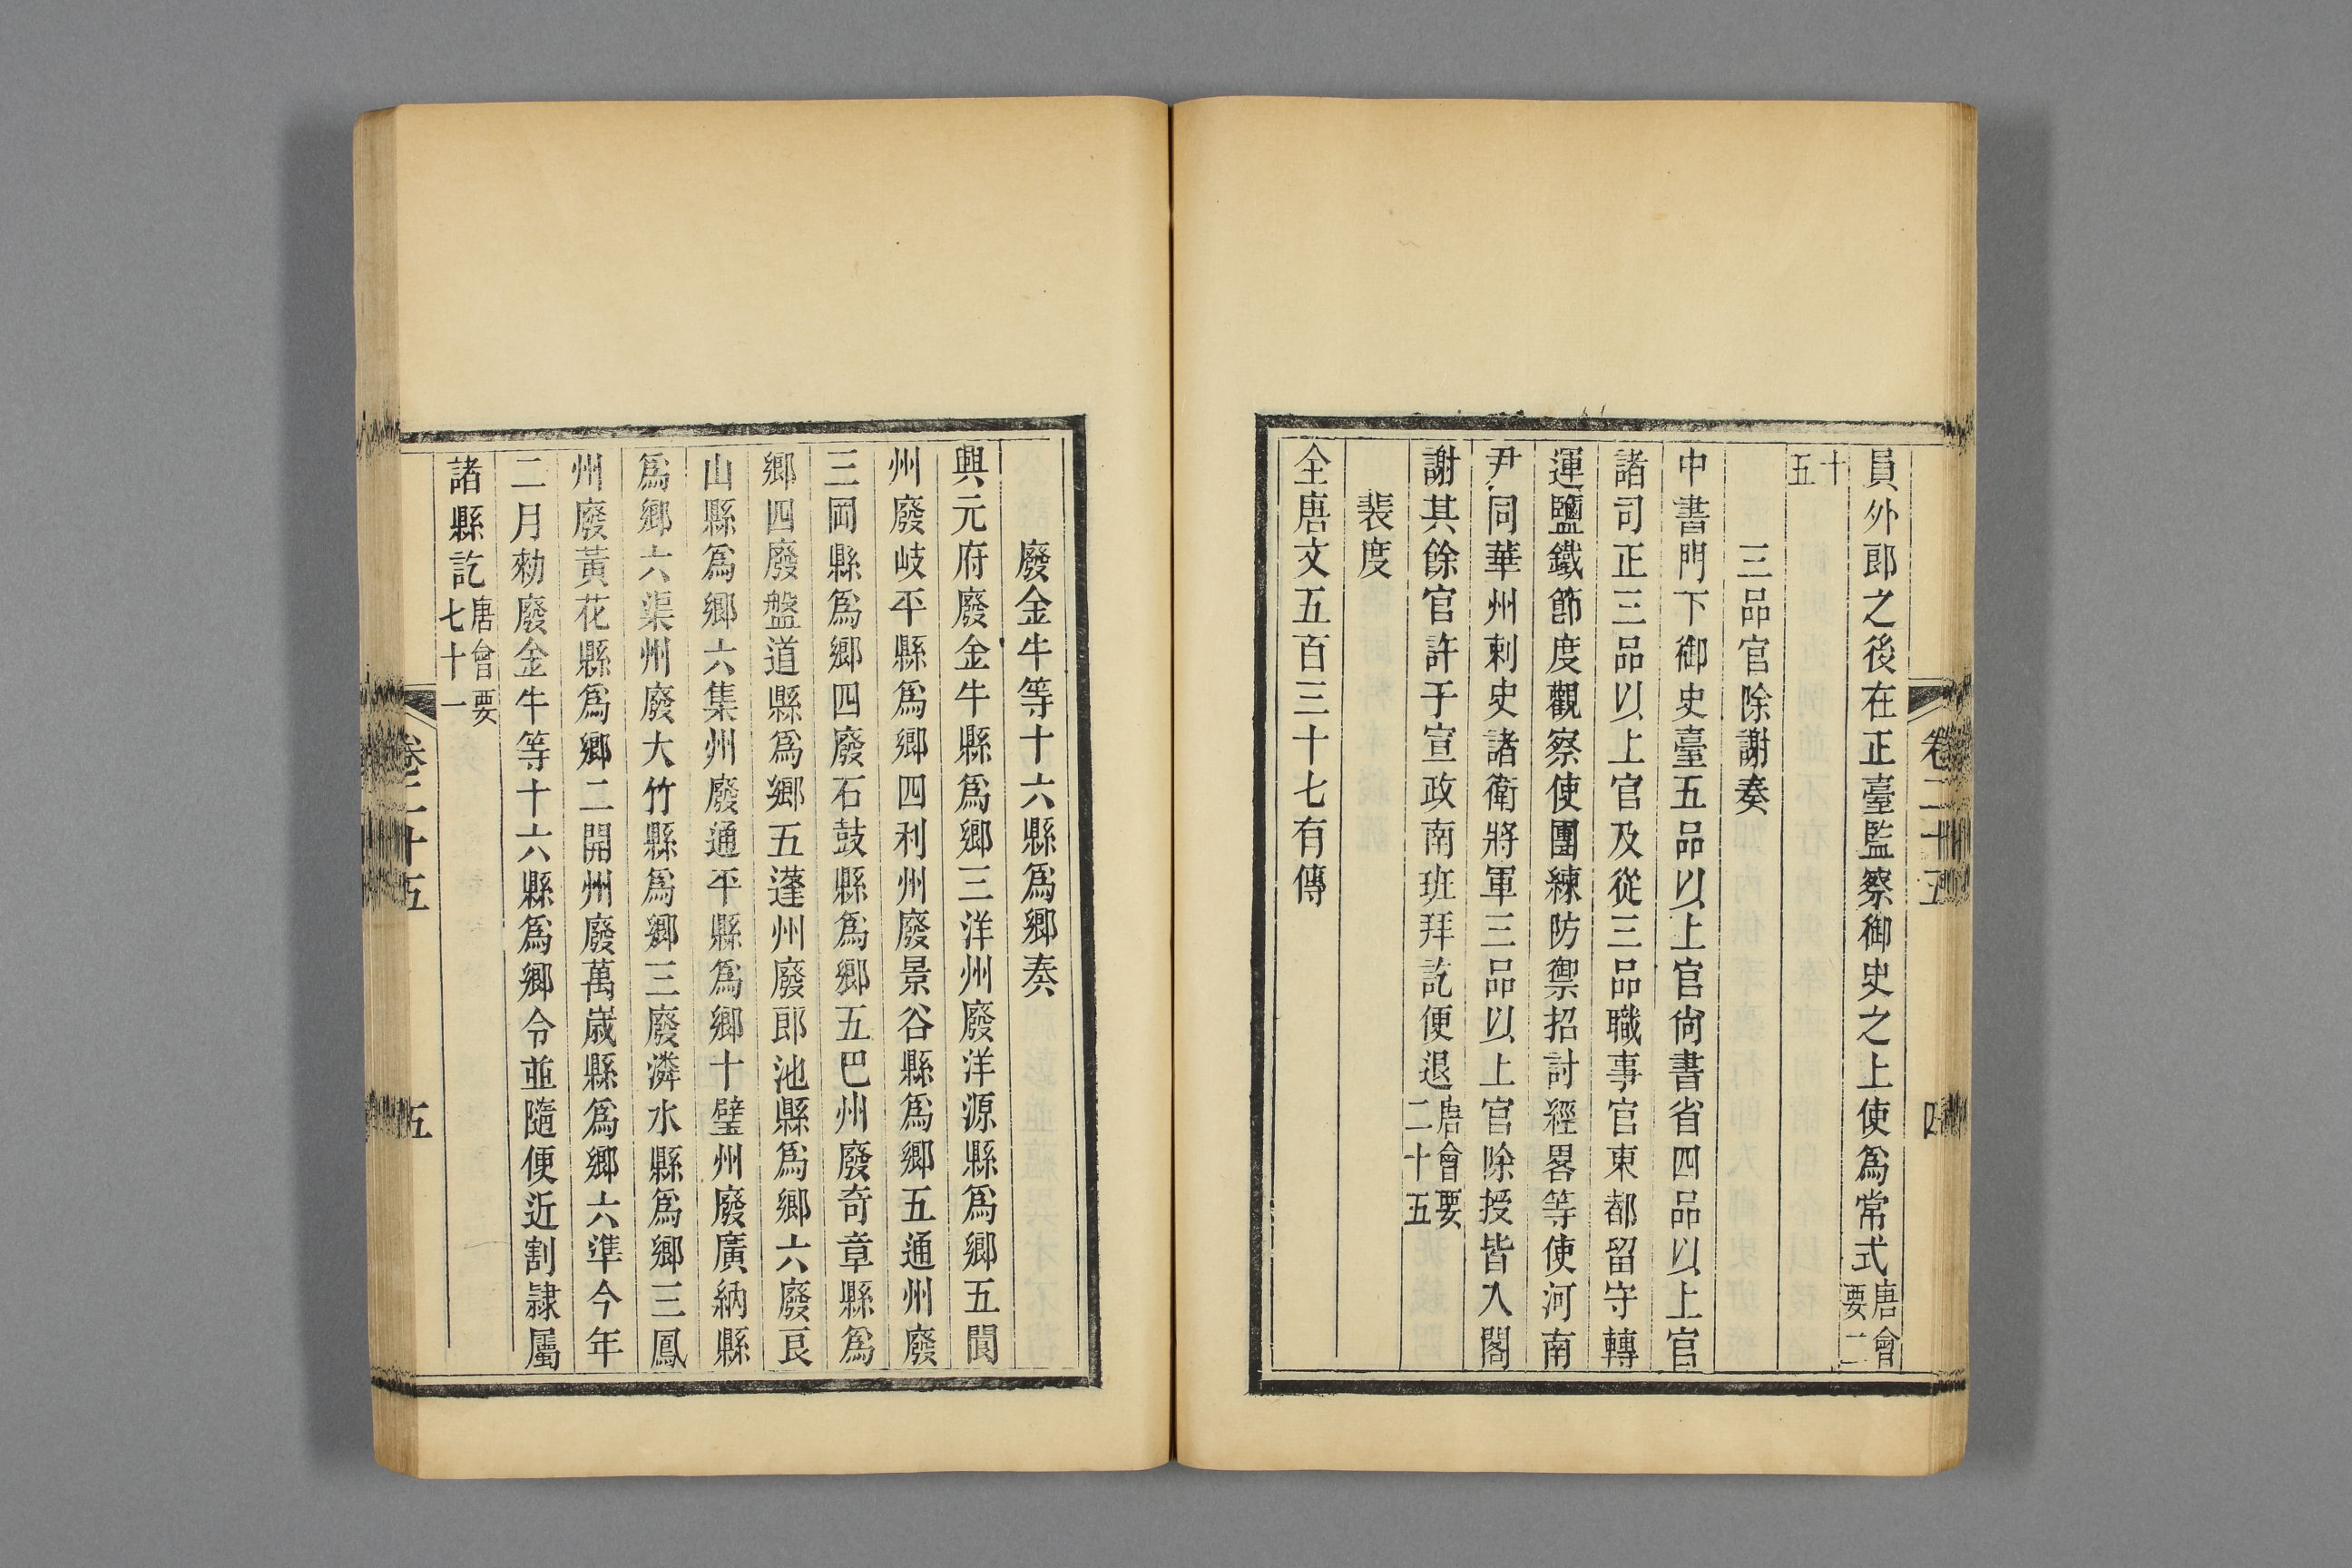 員外郎之後在正臺監察御史之上使爲常式唐會要二
十五
三品官除謝奏
中書門下御史臺五品以上官尙書省四品以上官
諸司正三品以上官及從三品職事官東都留守轉
運鹽鐵節度觀察使團練防禦招討經畧等使河南
尹同華州刺史諸衛將軍三品以上官除授皆入閤
謝其餘官許于宣政南班拜訖便退唐會要二十五
裴度
全唐文五百三十七有傳
卷二十五 四
廢金牛等十六縣爲鄉奏
興元府廢金牛縣爲鄉三洋州廢洋源縣爲鄉五閬
州廢岐平縣爲鄉四利州廢景谷縣爲鄉五通州廢
三岡縣爲鄉四廢石鼓縣爲鄉五巴州廢奇章縣爲
鄉四廢盤道縣爲鄉五蓬州廢郎池縣爲鄉六廢良
山縣爲鄉六集州廢通平縣爲鄉十璧州廢廣納縣
爲鄉六渠州廢大竹縣爲鄉三廢潾水縣爲鄉三鳳
州廢黃花縣爲鄉二開州廢萬歲縣爲鄉六準今年
二月勑廢金牛等十六縣爲鄉令並隨便近割隷屬
諸縣訖唐會要七十一
卷二十五 五